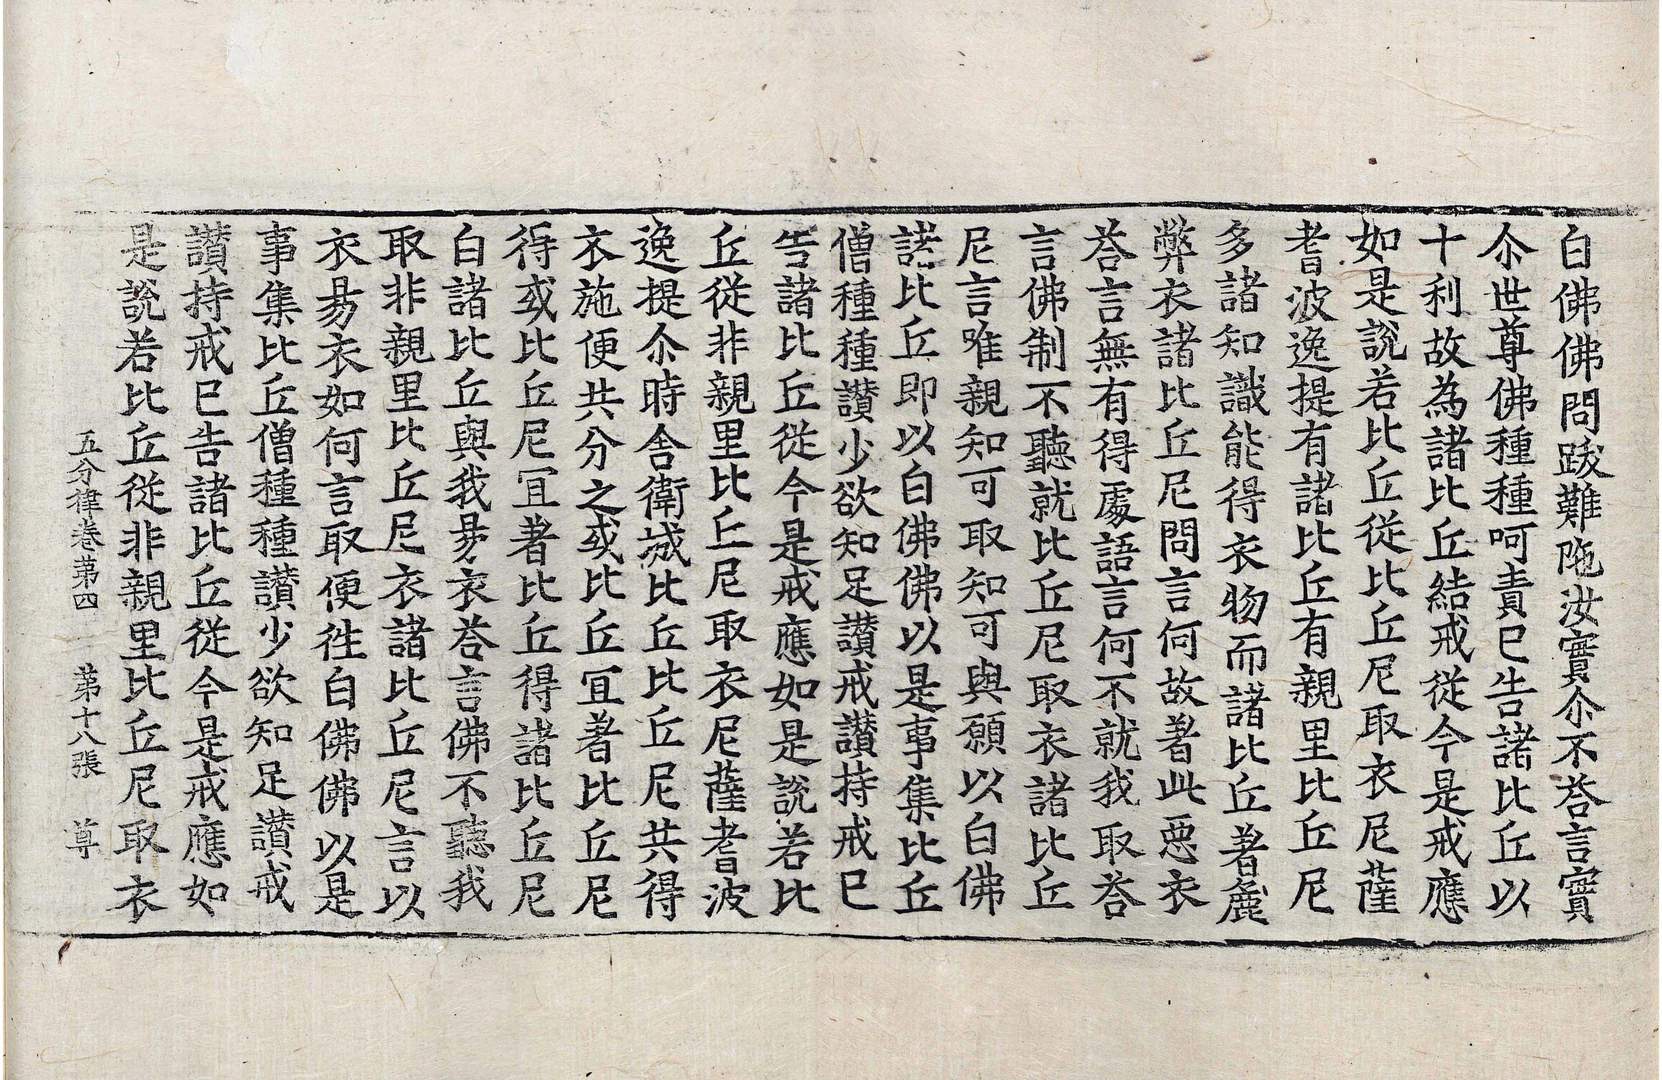 白佛佛問跋難陁汝實尒不荅言實
尒世尊佛種種呵責已告諸比丘以
十利故為諸比丘結戒從今是戒應
如是說若比丘從比丘尼取衣尼薩
耆波逸提有諸比丘有親里比丘尼
多諸知識能得衣物而諸比丘著麁
弊衣諸比丘尼問言何故著此惡衣
荅言無有得處語言何不就我取荅
言佛制不聽就比丘尼取衣諸比丘
尼言唯親知可取知可與願以白佛
諸比丘即以白佛佛以是事集比丘
僧種種讃少欲知足讃戒讃持戒已
告諸比丘從今是戒應如是說若比
丘從非親里比丘尼取衣尼薩耆波
逸提尒時舍衛城比丘比丘尼共得
衣施便共分之或比丘冝著比丘尼
得或比丘尼冝著比丘得諸比丘尼
白諸比丘與我昜衣荅言佛不聽我
取非親里比丘尼衣諸比丘尼言以
衣昜衣如何言取便徃白佛佛以是
事集比丘僧種種讃少欲知足讃戒
讃持戒已告諸比丘從今是戒應如
是說若比丘從非親里比丘尼取衣
五分律卷苐四 苐十八張 尊